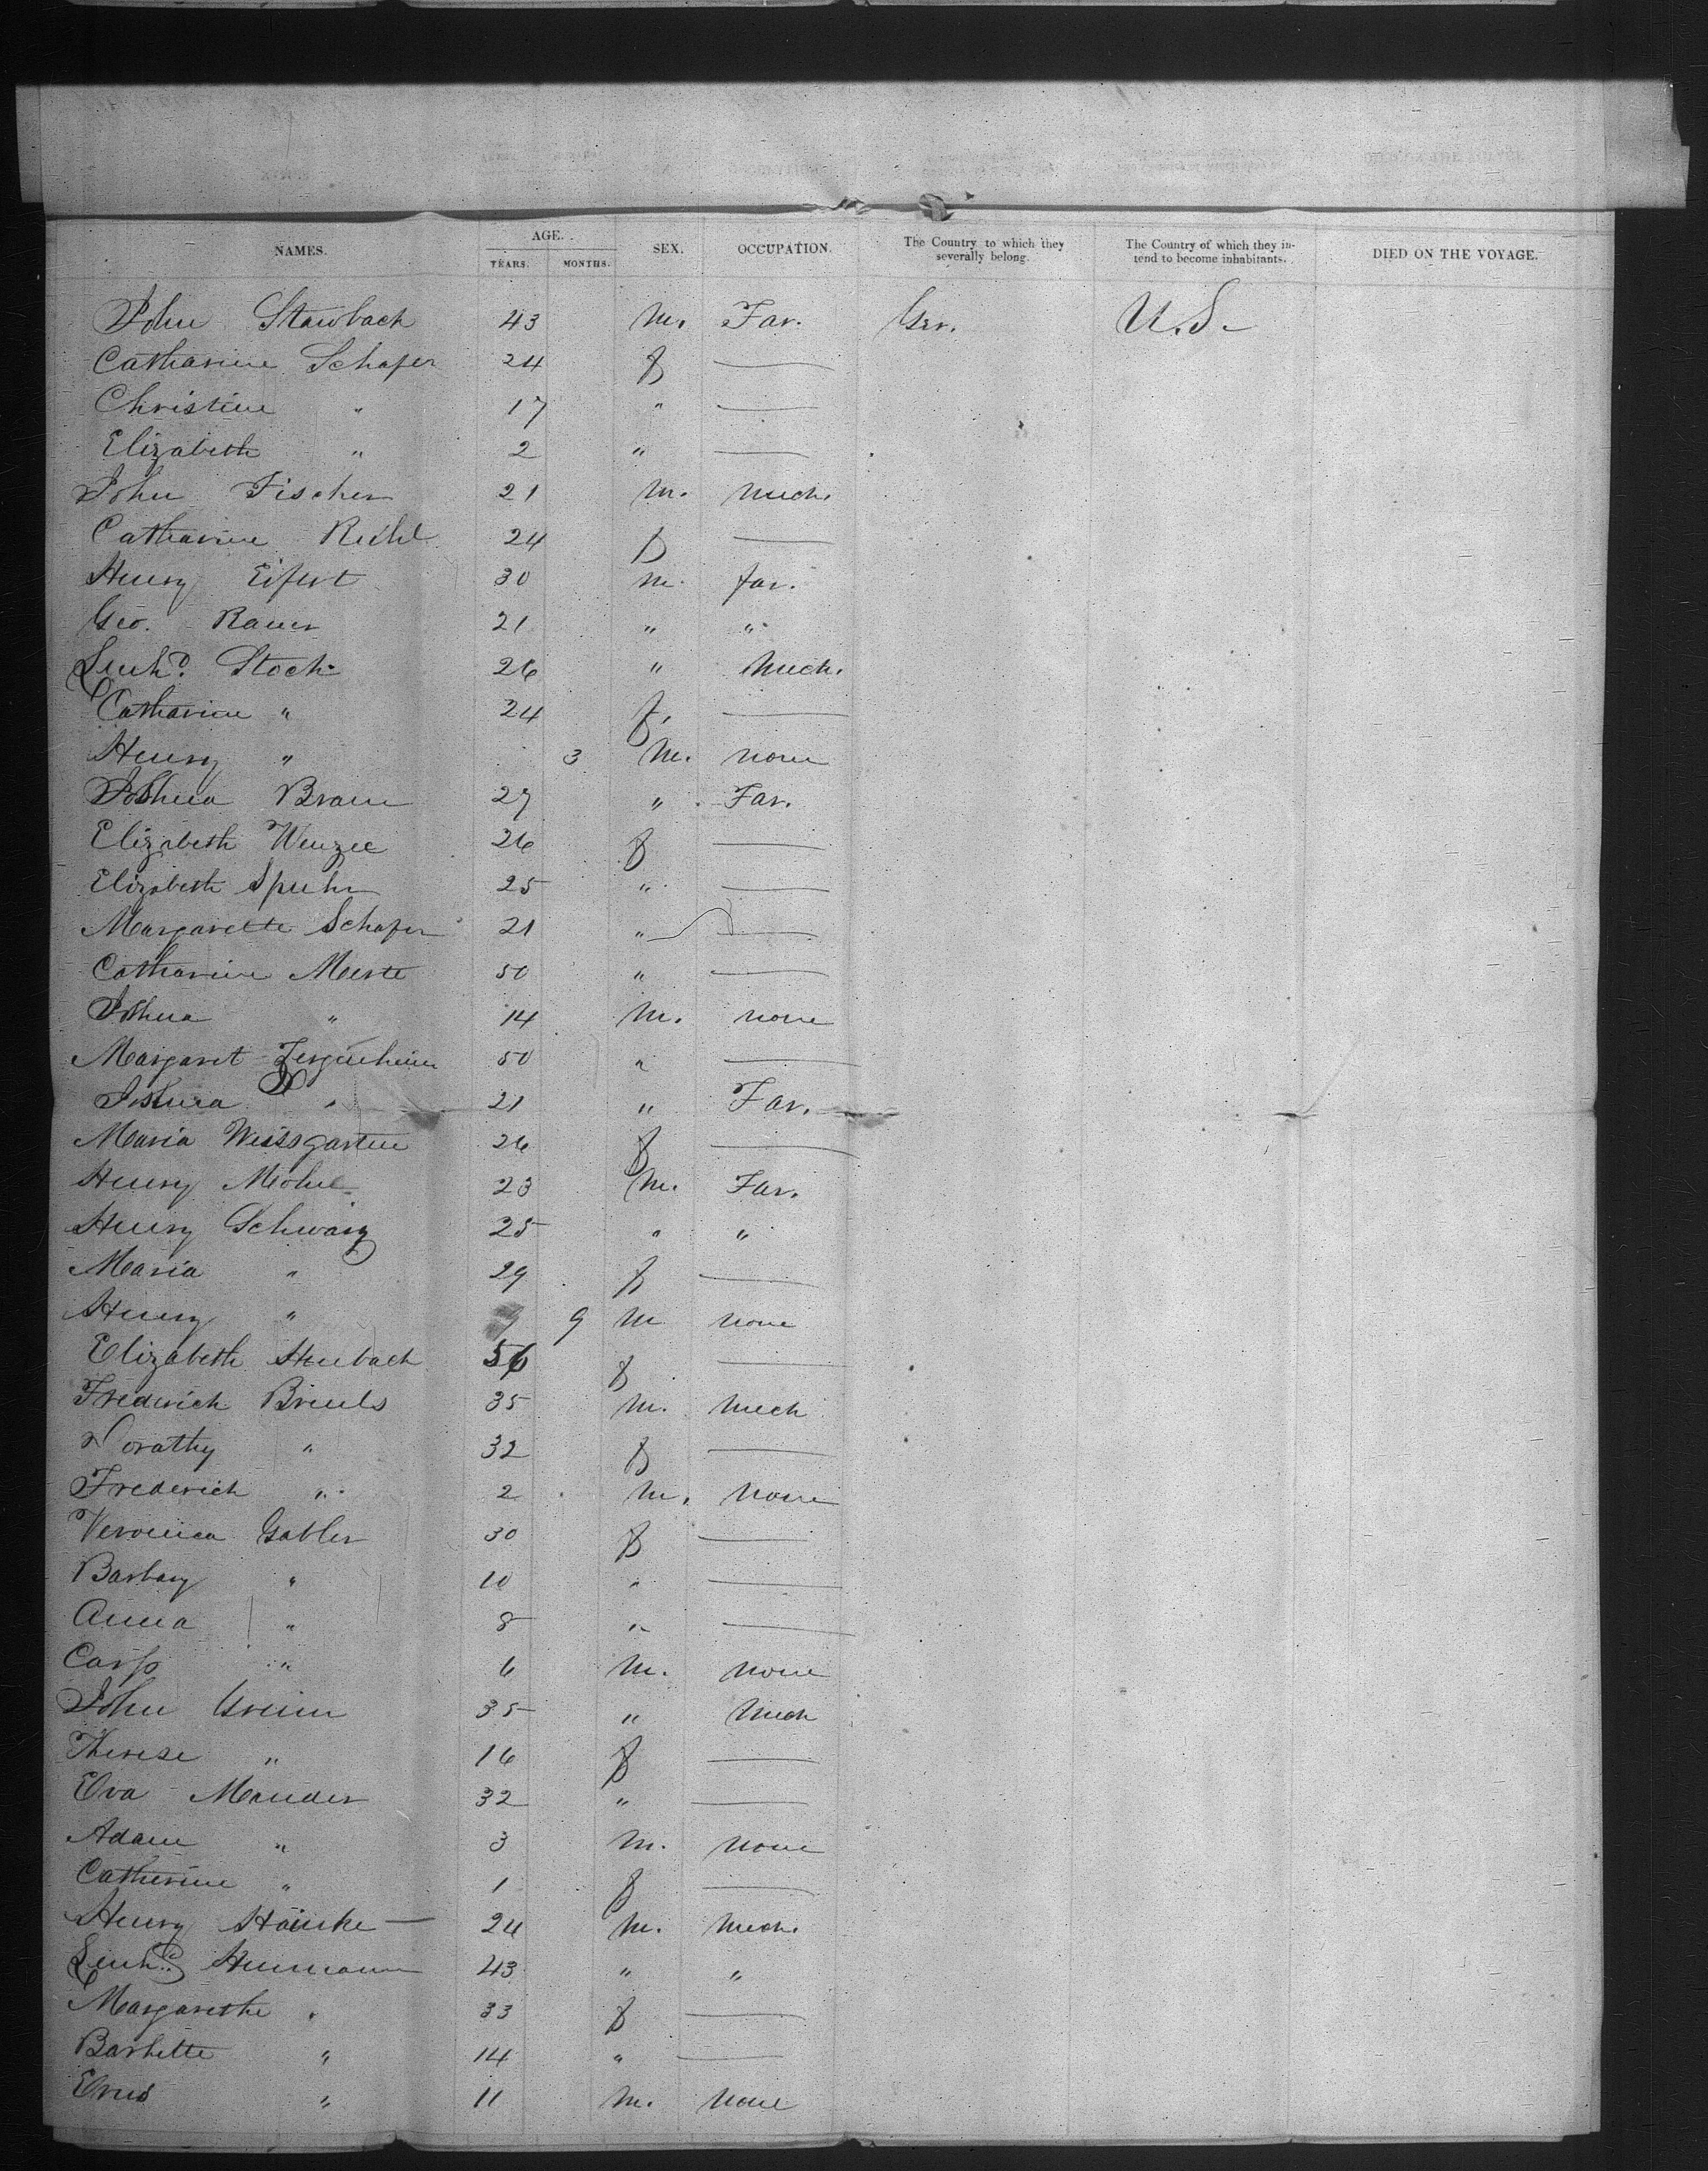 NAMES. AGE. YEARS. MONTHS. SEX. OCCUPATION. The Country to which they severally belong. The Country of which they intend to become inhabitants. DIED ON THE VOYAGE.
John Stawbach 43 m. Far. Ger. U.S.
Catharine Schafer 24 f —
Christine " 17 " —
Elizabeth " 2 " —
John Fischer 21 m. Mech.
Catharine 24 f —
Henry Eifert 30 m. far.
Geo. Bauer 21 " "
Stock 26 " Mech.
Catharine " 24 f. —
Henry " 3 m. none
Joshua Braun 27 " Far.
Elizabeth Wenzel 26 f —
Elizabeth Spuhr 25 " —
Margarette Schafer 21 " —
Catharine Merte 50 " —
Joshua " 14 m. none
Margaret 50 " —
Joshua " 21 " Far.
Maria Weissgarten 26 f —
Henry Mohl 23 m. Far.
Henry Schwarz 25 " "
Maria " 29 f —
Henry " 9 m none
Elizabeth Heubach 56 f —
Frederich 35 m. Mech
Dorathy " 32 f —
Frederich " 2 m. none
Veronica Gabler 30 f —
Barbary " 10 " —
Anna " 8 " —
" 6 m. none
John Greim 35 " Mech
Therese " 16 f —
Eva Mauder 32 " —
Adam " 3 m. none
Catherine " 1 f —
Henry Häuske 24 m. Mech.
Heumann 43 " "
Margarethe " 33 f —
Barbette " 14 " —
" 11 m. none